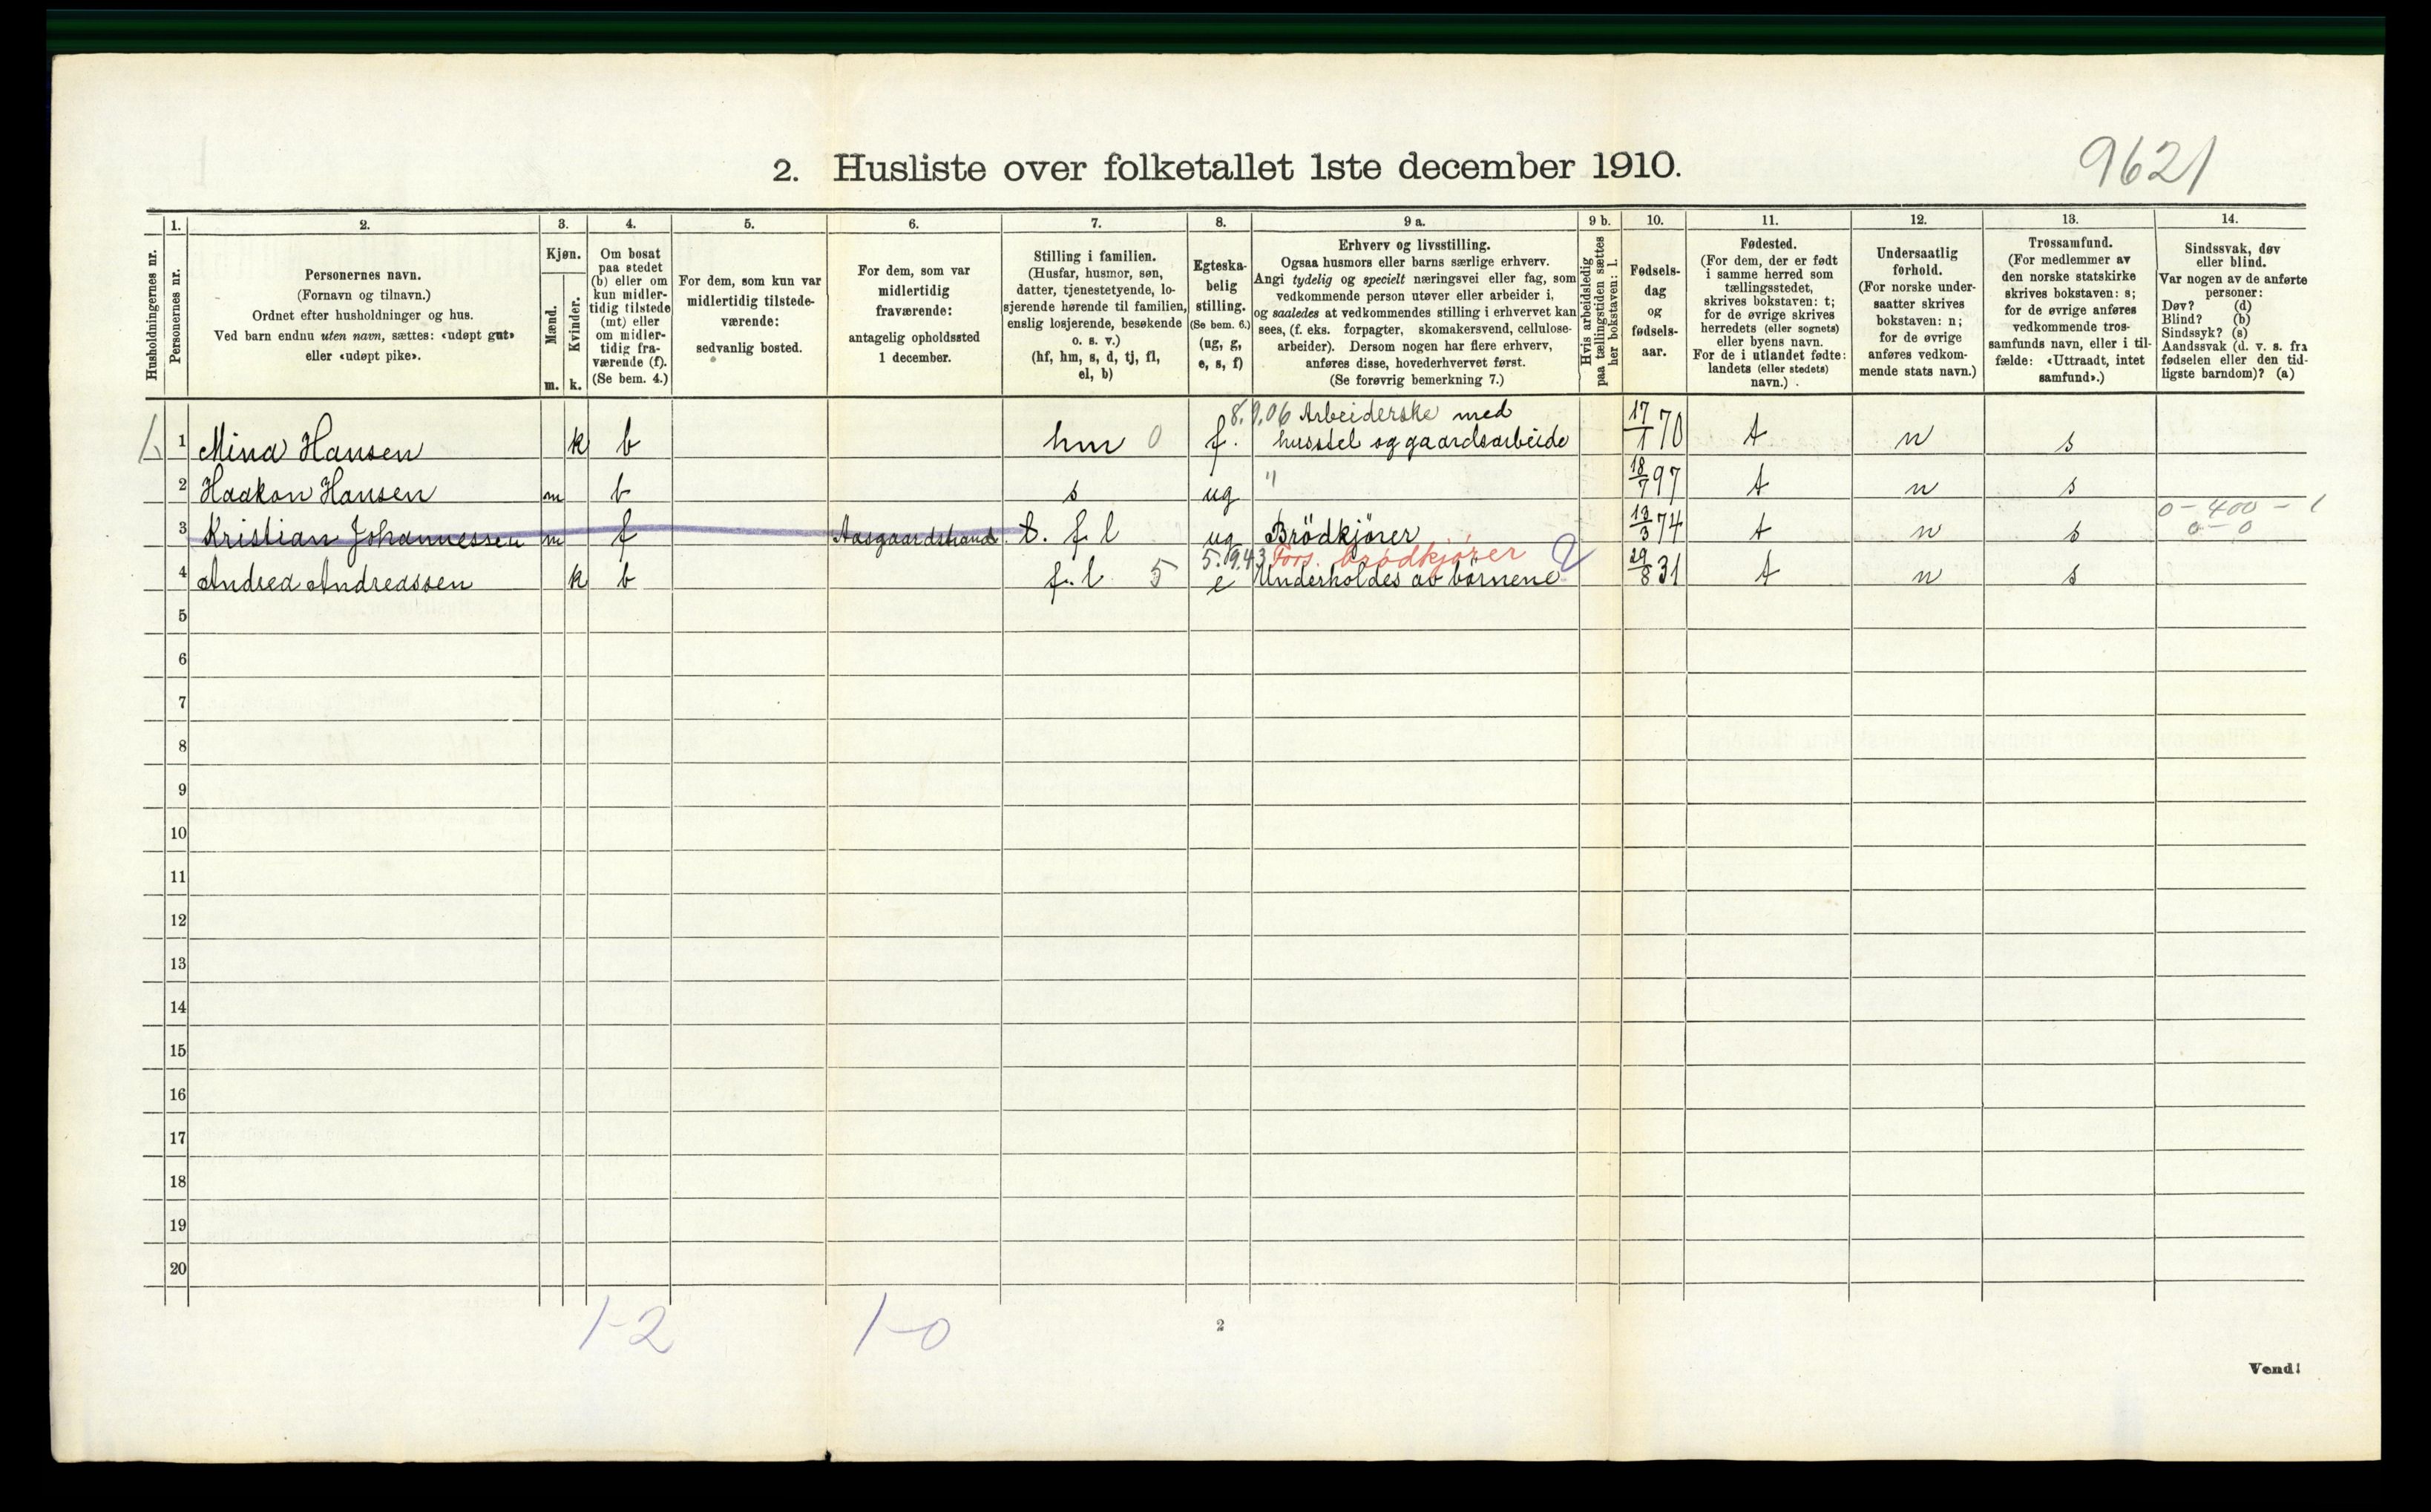 2. Husliste over folketallet 1ste december 1910.
9621
Husholdningernes nr.
1.
Personernes nr.
2.
Personernes navn.
(Fornavn og tilnavn.)
Ordnet efter husholdninger og hus.
Ved barn endnu uten navn, sættes: «udøpt gut»
eller «udøpt pike».
3.
Kjøn.
Mænd.
Kvinder.
m. k.
4.
Om bosat
paa stedet
(b) eller om
kun midler-
tidig tilstede
(mt) eller
om midler-
tidig fra-
værende (f).
(Se bem. 4.)
5.
For dem, som kun var
midlertidig tilstede-
værende:
sedvanlig bosted.
6.
For dem, som var
midlertidig
fraværende:
antagelig opholdssted
1 december.
7.
Stilling i familien.
(Husfar, husmor, søn,
datter, tjenestetyende, lo-
sjerende hørende til familien,
enslig losjerende, besøkende
o. s. v.)
(hf, hm, s, d, tj, fl,
el, b)
8.
Egteska-
belig
stilling.
(Se bem. 6.)
(ug, g,
e, s, f)
9 a.
Erhverv og livsstilling.
Ogsaa husmors eller barns særlige erhverv.
Angi tydelig og specielt næringsvei eller fag, som
vedkommende person utøver eller arbeider i,
og saaledes at vedkommendes stilling i erhvervet kan
sees, (f. eks. forpagter, skomakersvend, cellulose-
arbeider). Dersom nogen har flere erhverv,
anføres disse, hovederhvervet først.
(Se forøvrig bemerkning 7.)
9 b.
Hvis arbeidsledig
paa tællingstiden sættes
her bokstaven: l.
10.
Fødsels-
dag
og
fødsels-
aar.
11.
Fødested.
(For dem, der er født
i samme herred som
tællingsstedet,
skrives bokstaven: t;
for de øvrige skrives
herredets (eller sognets)
eller byens navn.
For de i utlandet fødte:
landets (eller stedets)
navn.)
12.
Undersaatlig
forhold.
(For norske under-
saatter skrives
bokstaven: n;
for de øvrige
anføres vedkom-
mende stats navn.)
13.
Trossamfund.
(For medlemmer av
den norske statskirke
skrives bokstaven: s;
for de øvrige anføres
vedkommende tros-
samfunds navn, eller i til-
fælde: «Uttraadt, intet
samfund».)
14.
Sindssvak, døv
eller blind.
Var nogen av de anførte
personer:
Døv? (d)
Blind? (b)
Sindssyk? (s)
Aandssvak (d. v. s. fra
fødselen eller den tid-
ligste barndom)? (a)
8.9.06 Arbeiderske med
1 Mina Hansen k b hm 0 f. husstel og gaardsarbeide 17/1 70 t n s
2 Haakon Hansen m b s ug " 18/7 97 t n s
0-400-1
3 Kristian Johannessen m f Aasgaardstrand t. f l ug Brödkjörer 13/3 74 t n s 0-0
5.9.43 Fors. brødkjører 2
4 Andrea Andreassen k b f.l 5 e Underholdes av börnene 29/8 31 t n s
5
6
7
8
9
10
11
12
13
14
15
16
17
18
19
20
1-2 1-0
2
Vend!